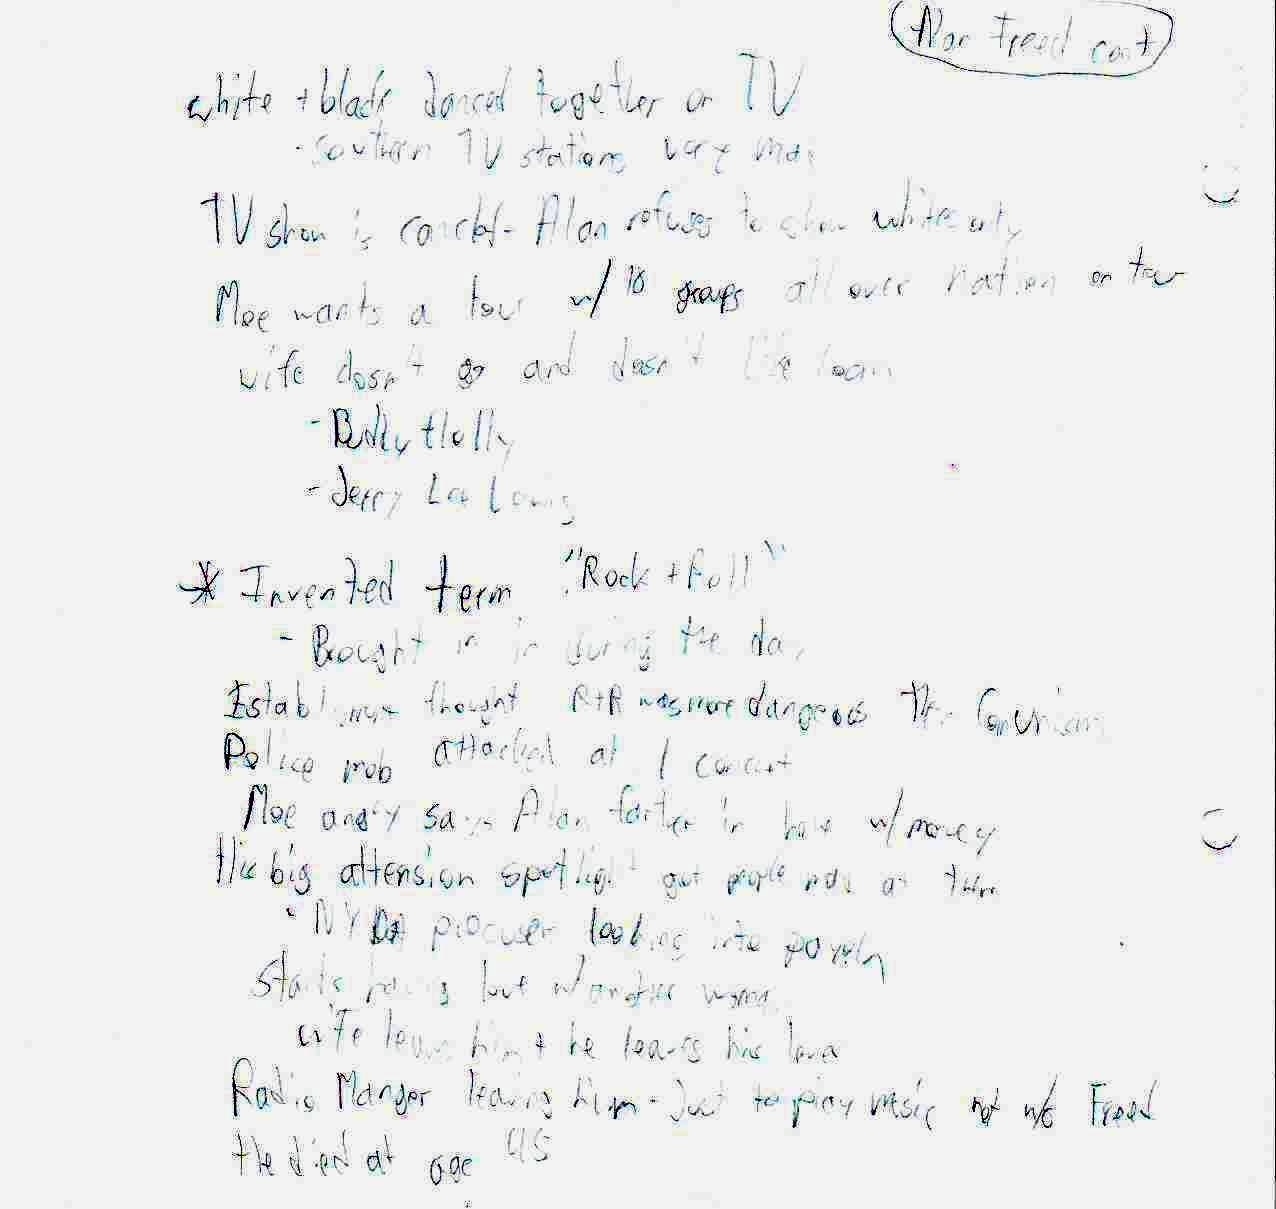 Alan Freed cont
white + black danced together on TV
- southern TV stations very mad
TV show is cancled - Alan refuses to show whites only
Moe wants a tour w/ 10 groups all over nation on tour
wife dosn't go and dosn't like loan
- Buddy Holly
- Jerry Lee Lewis
* Invented term "Rock + Roll"
- Brought in in during the day
Establishment thought R+R was more dangeous then Comunism
Police mob attacked at 1 concert
Moe angry says Alan farther in hole w/ money
His big attension spotlight got people mad at him
- NY DA procuser looking into payola
Starts having love w/ another woman
wife leaves him + he leaves his lover
Radio Manger leaving him - Just to play music not w/o Freed
He died at age 45